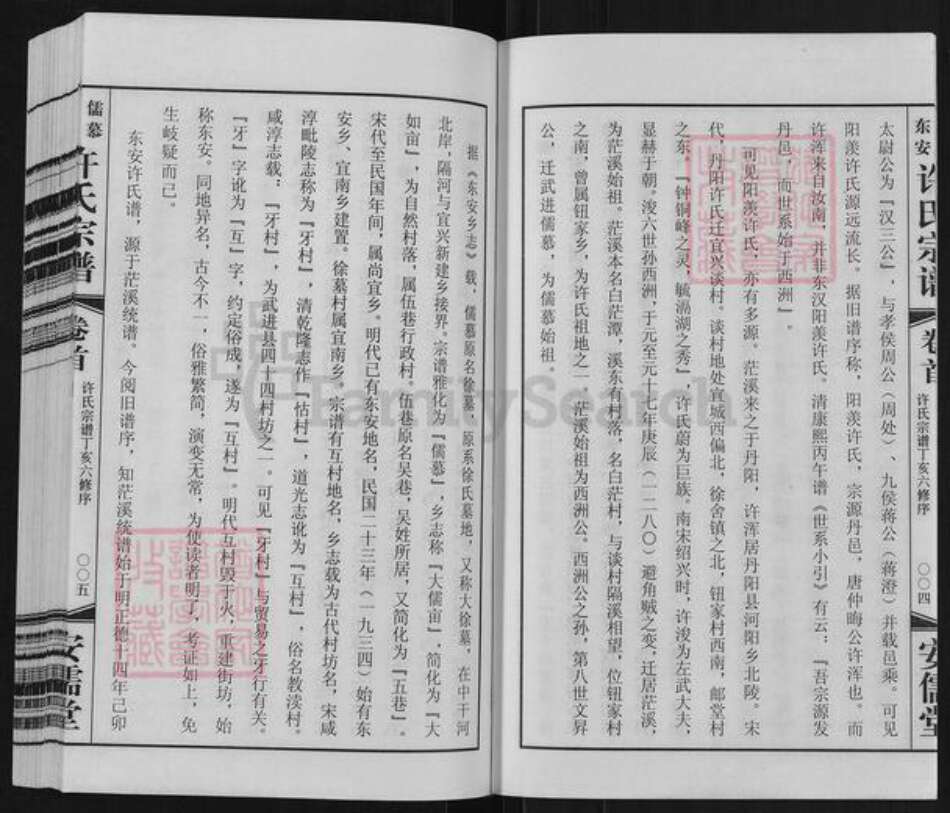 东安
许氏宗谱
卷首
许氏宗谱丁亥六修序
〇〇四
安儒堂
太尉公为『汉三公』，与孝侯周公（周处）、九侯蒋公（蒋澄）并载邑乘。可见
阳羡许氏源远流长。据旧谱序称，阳羡许氏，宗源丹邑，唐仲晦公许浑也。而
许浑来自汝南，并非东汉阳羡许氏。清康熙丙午谱《世系小引》有云：『吾宗源发
丹邑，而世系始于西洲』。
可见阳羡许氏，亦有多源。茫溪来之于丹阳，许浑居丹阳县河阳乡北陵。宋
代，丹阳许氏迁宜兴谈村。谈村地处宜城西偏北，徐舍镇之北，钮家村西南，邮堂村
之东。『钟铜峰之灵，毓滆湖之秀』，许氏蔚为巨族。南宋绍兴时，许浚为左武大夫，
显赫于朝。浚六世孙西洲，于元至元十七年庚辰（一二八〇）避角贼之变，迁居茫溪，
为茫溪始祖。茫溪本名白茫潭，溪东有村落，名白茫村，与谈村隔溪相望，位钮家村
之南，曾属钮家乡，为许氏祖地之一。茫溪始祖为西洲公。西洲公之孙，第八世文昇
公，迁武进儒慕，为儒慕始祖。
据《东安乡志》载，儒慕原名徐墓，原系徐氏墓地，又称大徐墓，在中干河
北岸，隔河与宜兴新建乡接界。宗谱雅化为『儒慕』，乡志称『大儒亩』，简化为『大
如亩』，为自然村落，属伍巷行政村。伍巷原名吴巷，吴姓所居，又简化为『五巷』。
宋代至民国年间，属尚宜乡。明代已有东安地名，民国二十三年（一九三四）始有东
安乡、宜南乡建置。徐墓村属宜南乡。宗谱有互村地名，乡志载为古代村坊名，宋咸
淳毗陵志称为『牙村』，清乾隆志作『怙村』，道光志讹为『互村』，俗名教渎村。
咸淳志载：『牙村』，为武进县四十四村坊之一。可见『牙村』与贸易之牙行有关。
『牙』字讹为『互』字，约定俗成，遂为『互村』。明代互村毁于火，重建街坊，始
称东安。同地异名，古今不一，俗雅繁简，演变无常，为使读者明了，考证如上，免
生岐疑而已。
东安许氏谱，源于茫溪统谱。今阅旧谱序，知茫溪统谱始于明正德十四年己卯
儒慕
许氏宗谱
卷首
许氏宗谱丁亥六修序
〇〇五
安儒堂
FamilySearch